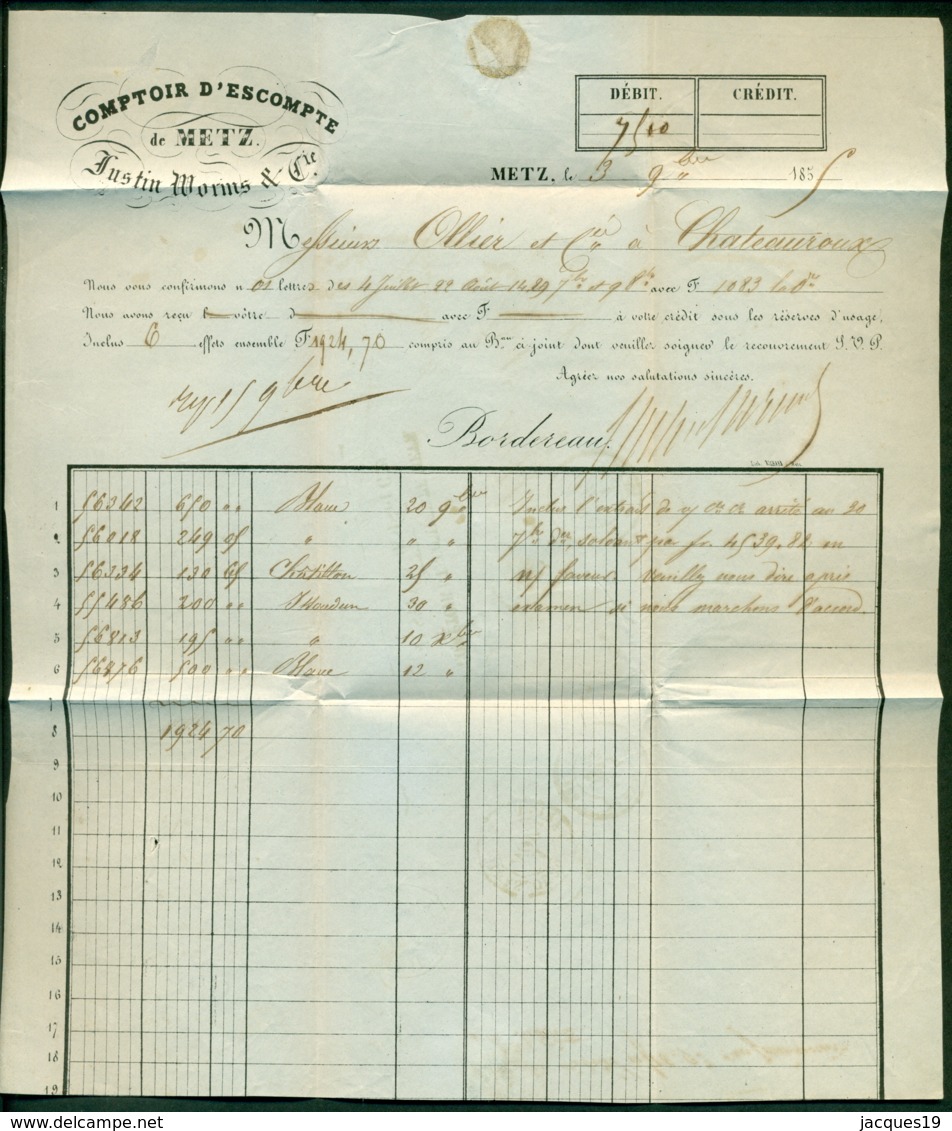 COMPTOIR D'ESCOMPTE
de METZ.
Justin Worms & Cie.
DÉBIT. CRÉDIT.
7/10
METZ, le 3 9bre 1855
Messieurs Ollier et Cie à Chateauroux
Nous vous confirmons n os lettres des 4 Juillet 22 Août 14 & 29 7bre et 9 8bre avec F 1083
Nous avons reçu l vôtre d avec F à votre crédit sous les réserves d'usage;
Inclus 6 effets ensemble F 1924,70 compris au Beau ci joint dont veuillez soigner le recouvrement S.V.P.
Agréez nos salutations sincères.
9bre
Bordereau.
1 56342 650 " Blanc 20 9bre Inclus l'extrait de v/ Cte Ct arrêté au 30
2 56018 249 05 " " " 7bre dr, soldant par fr. 4539.82 en
3 56334 130 65 Châtillon 25 " n/ faveur. Veuillez nous dire après
4 55486 200 " Issoudun 30 " examen si nous marchons d'accord.
5 56813 195 " " 10 Xbre
6 56876 500 " Blanc 12 "
7
8 1924 70
9
10
11
12
13
14
15
16
17
18
19
www.delcampe.net
jacques19